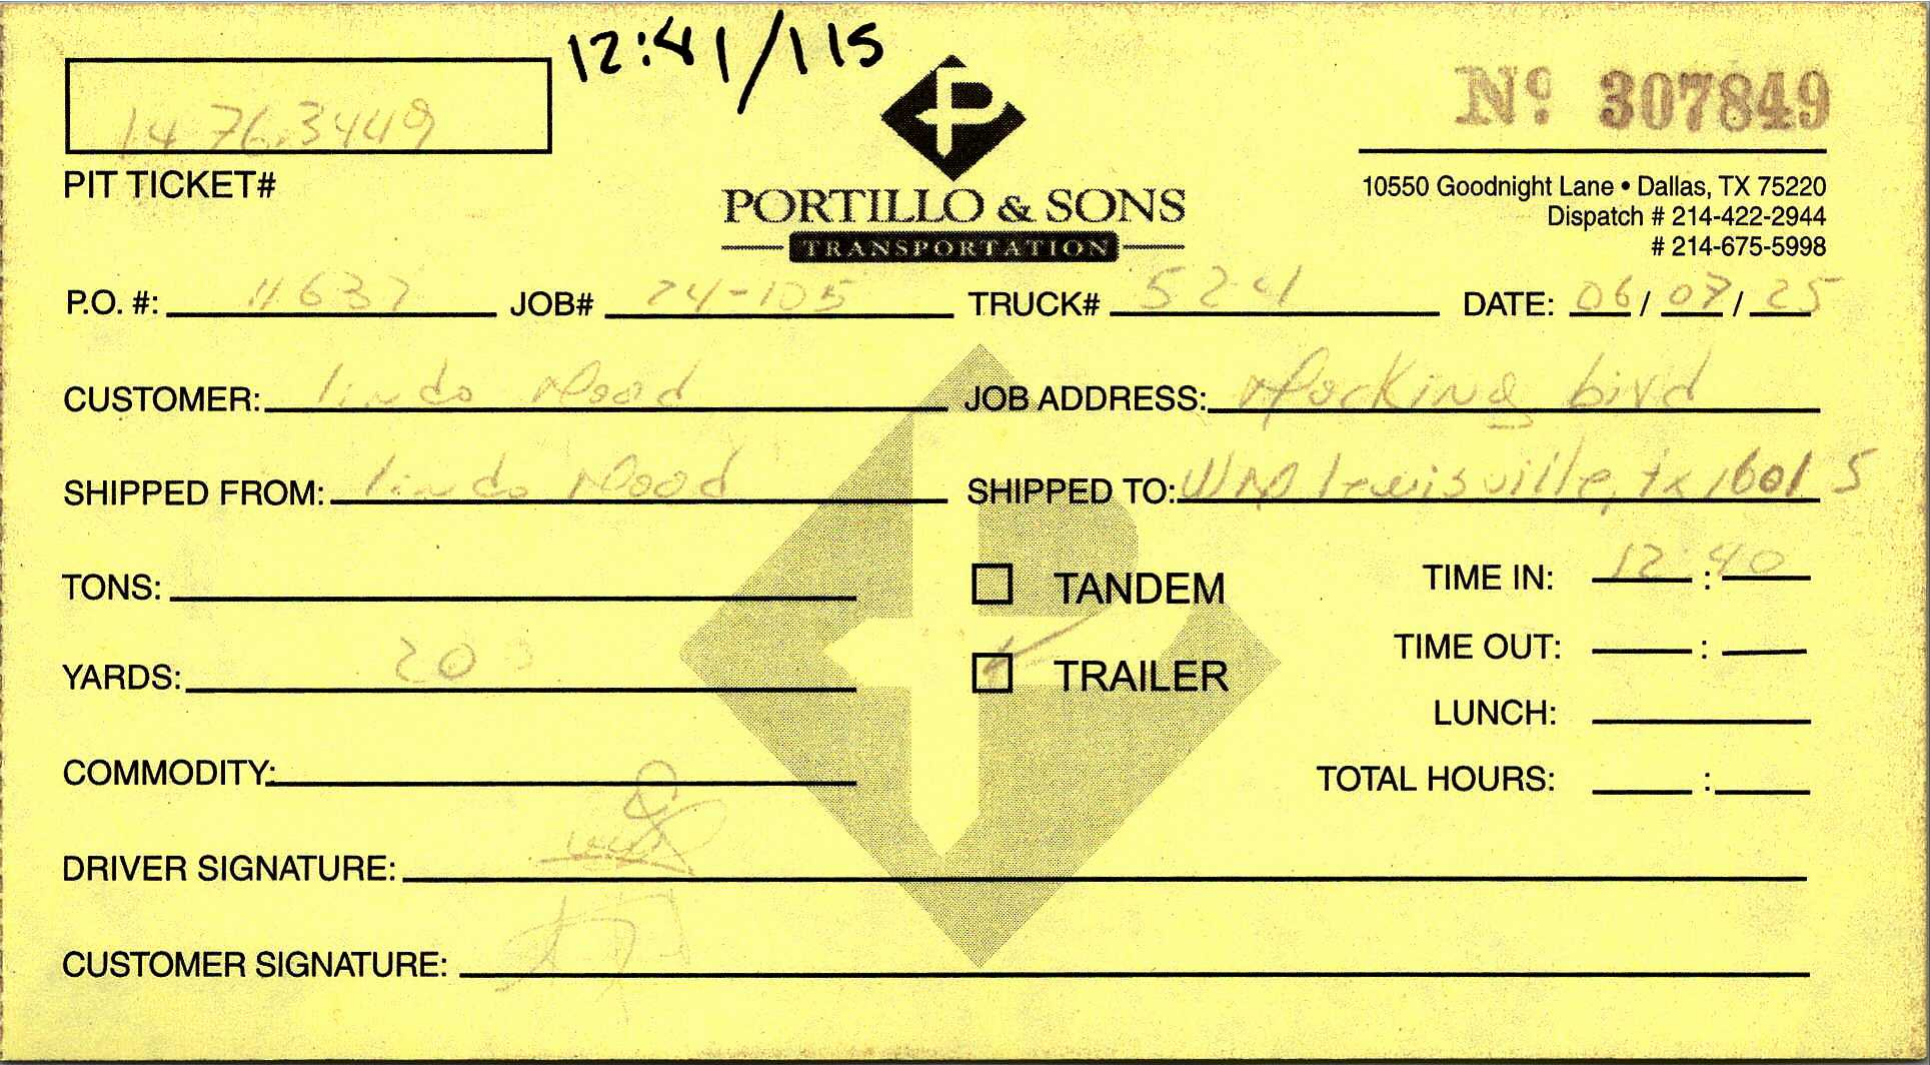 12:41/115
14763449
Nº 307849
PIT TICKET#
PORTILLO & SONS
TRANSPORTATION
10550 Goodnight Lane • Dallas, TX 75220
Dispatch # 214-422-2944
# 214-675-5998
P.O. #: 11637 JOB# 24-105 TRUCK# 524 DATE: 06/07/25
CUSTOMER: lindo Mood JOB ADDRESS: Mocking bird
SHIPPED FROM: lindo Mood SHIPPED TO: WM lewisville, tx 1601 S
TONS: TANDEM TIME IN: 12:40
YARDS: 20 TRAILER TIME OUT: :
LUNCH:
COMMODITY: TOTAL HOURS: :
DRIVER SIGNATURE:
CUSTOMER SIGNATURE: